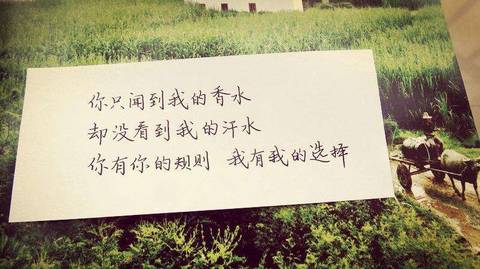 你只闻到我的香水
却没看到我的汗水
你有你的规则 我有我的选择